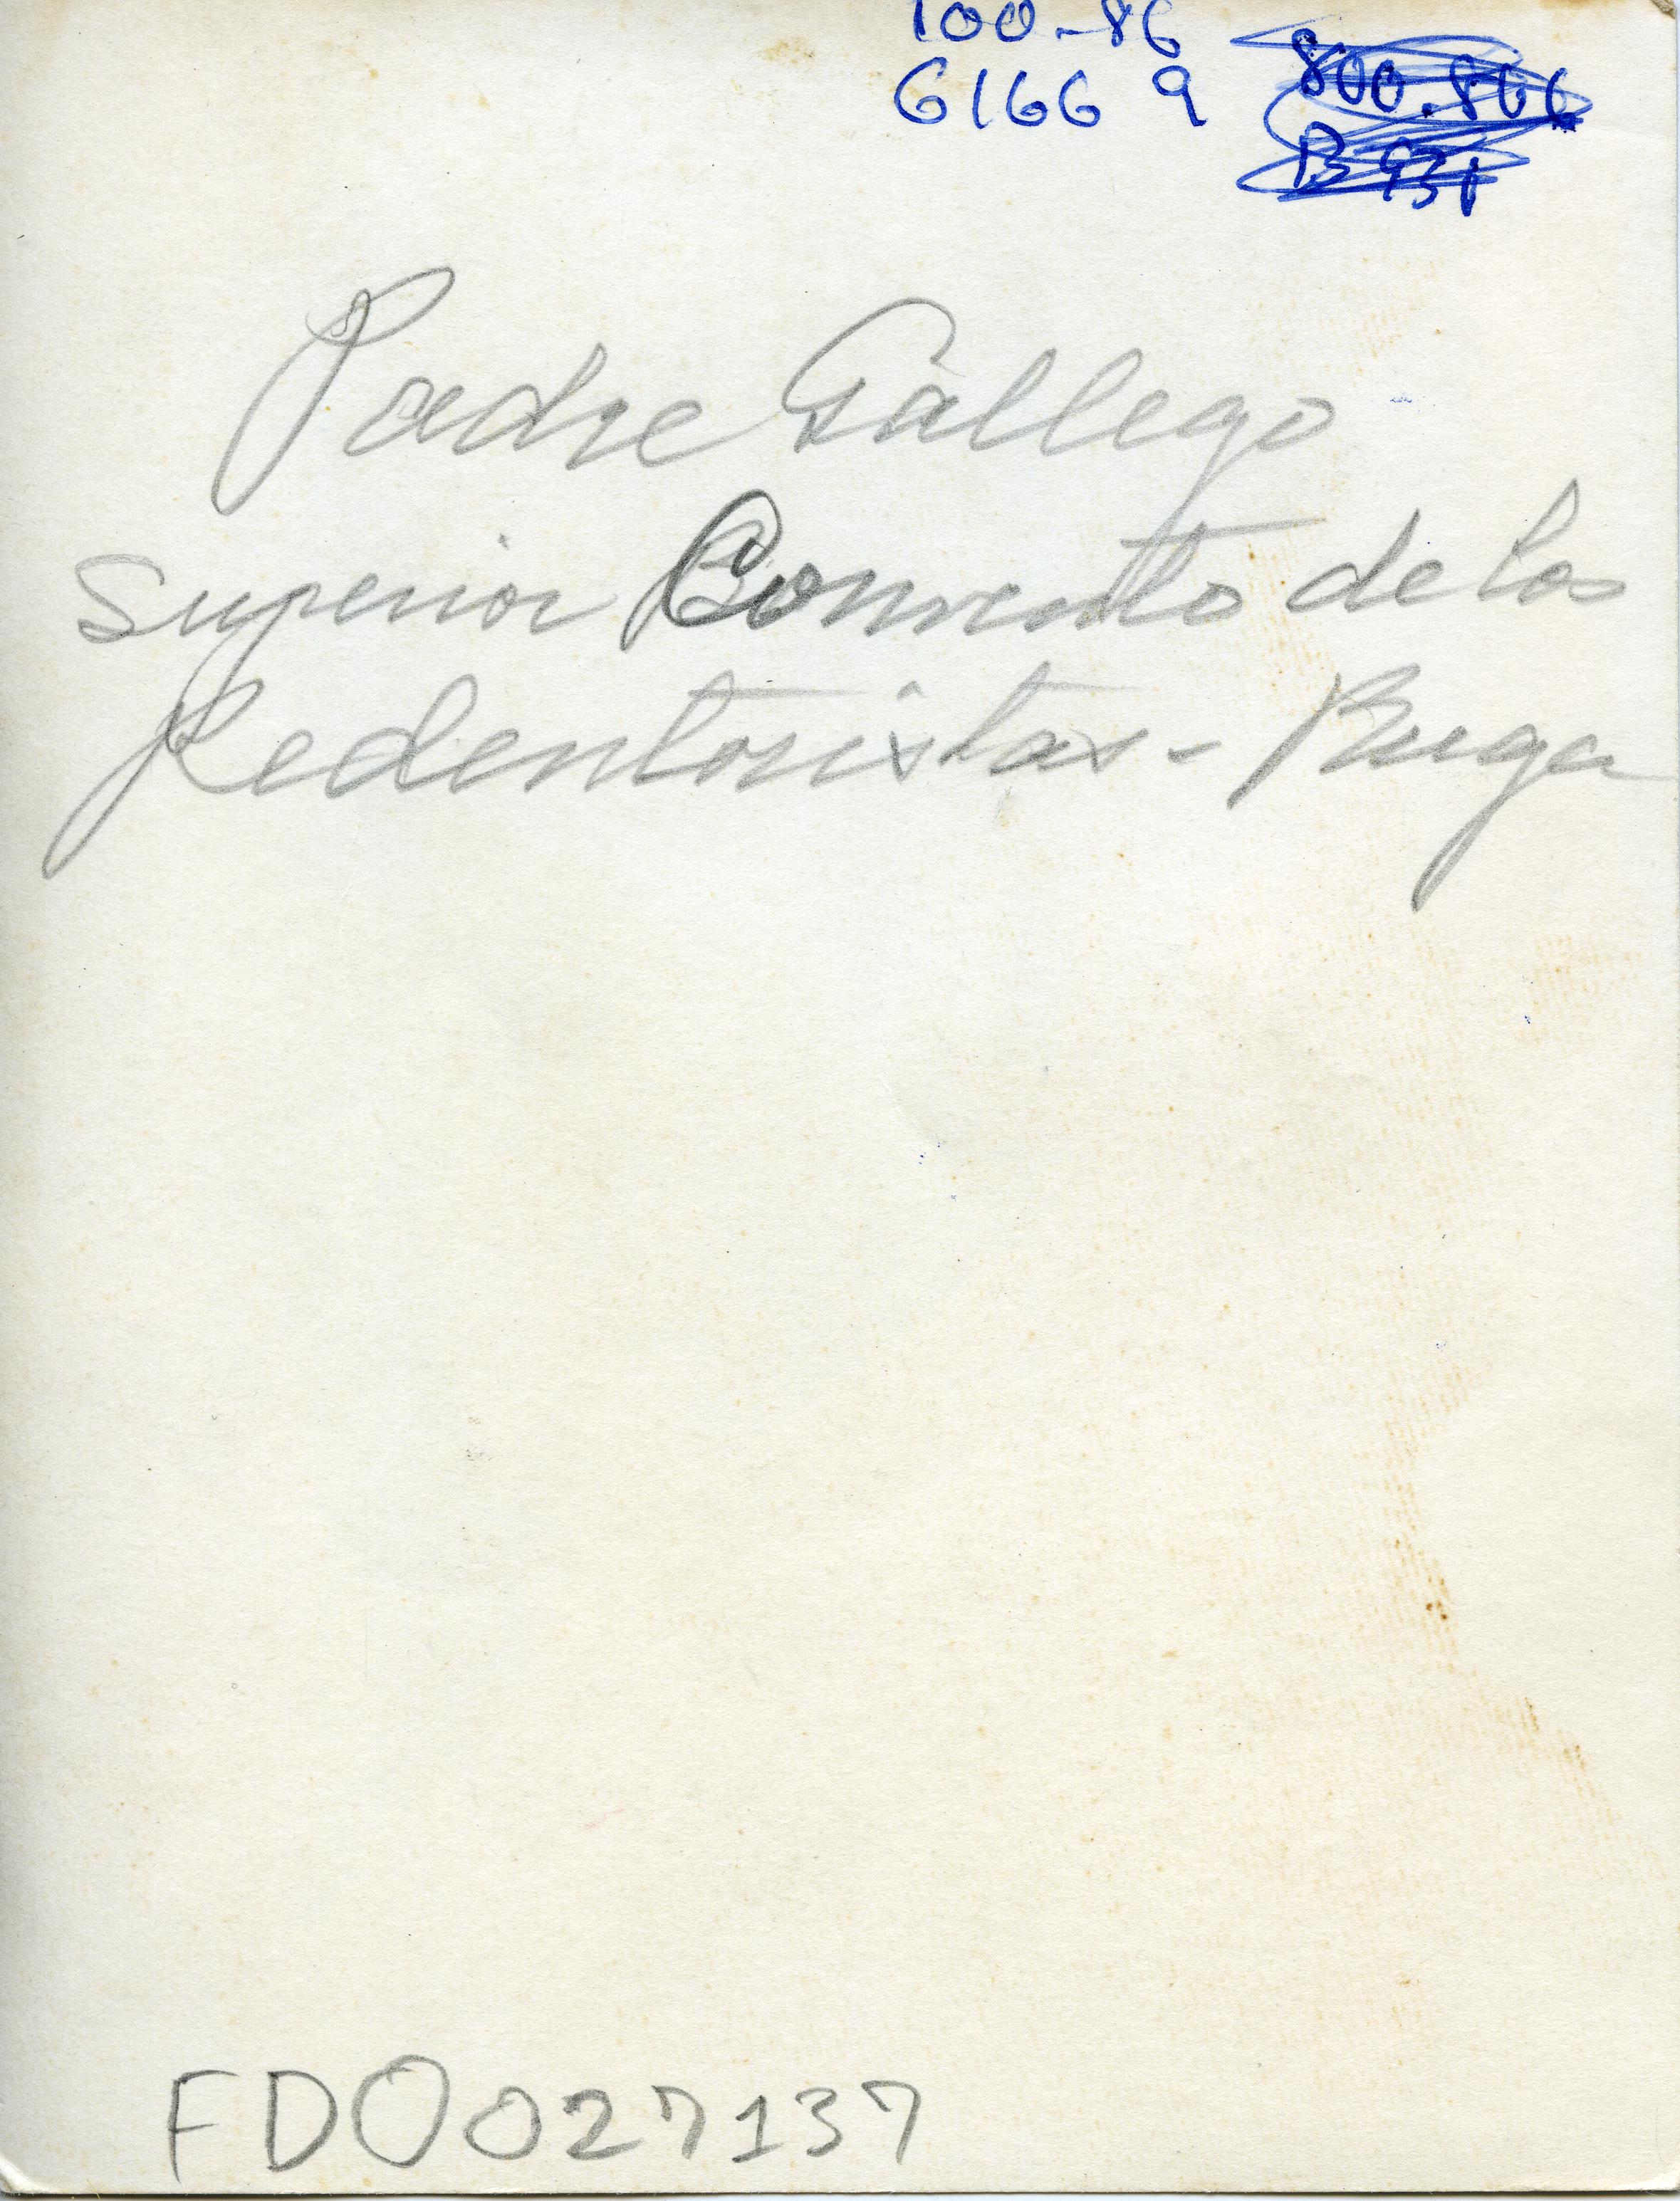 100-86
G166 9
800.866
Padre Gallego
Superior Convento de los
Redentoristas - Buga
FDO027137